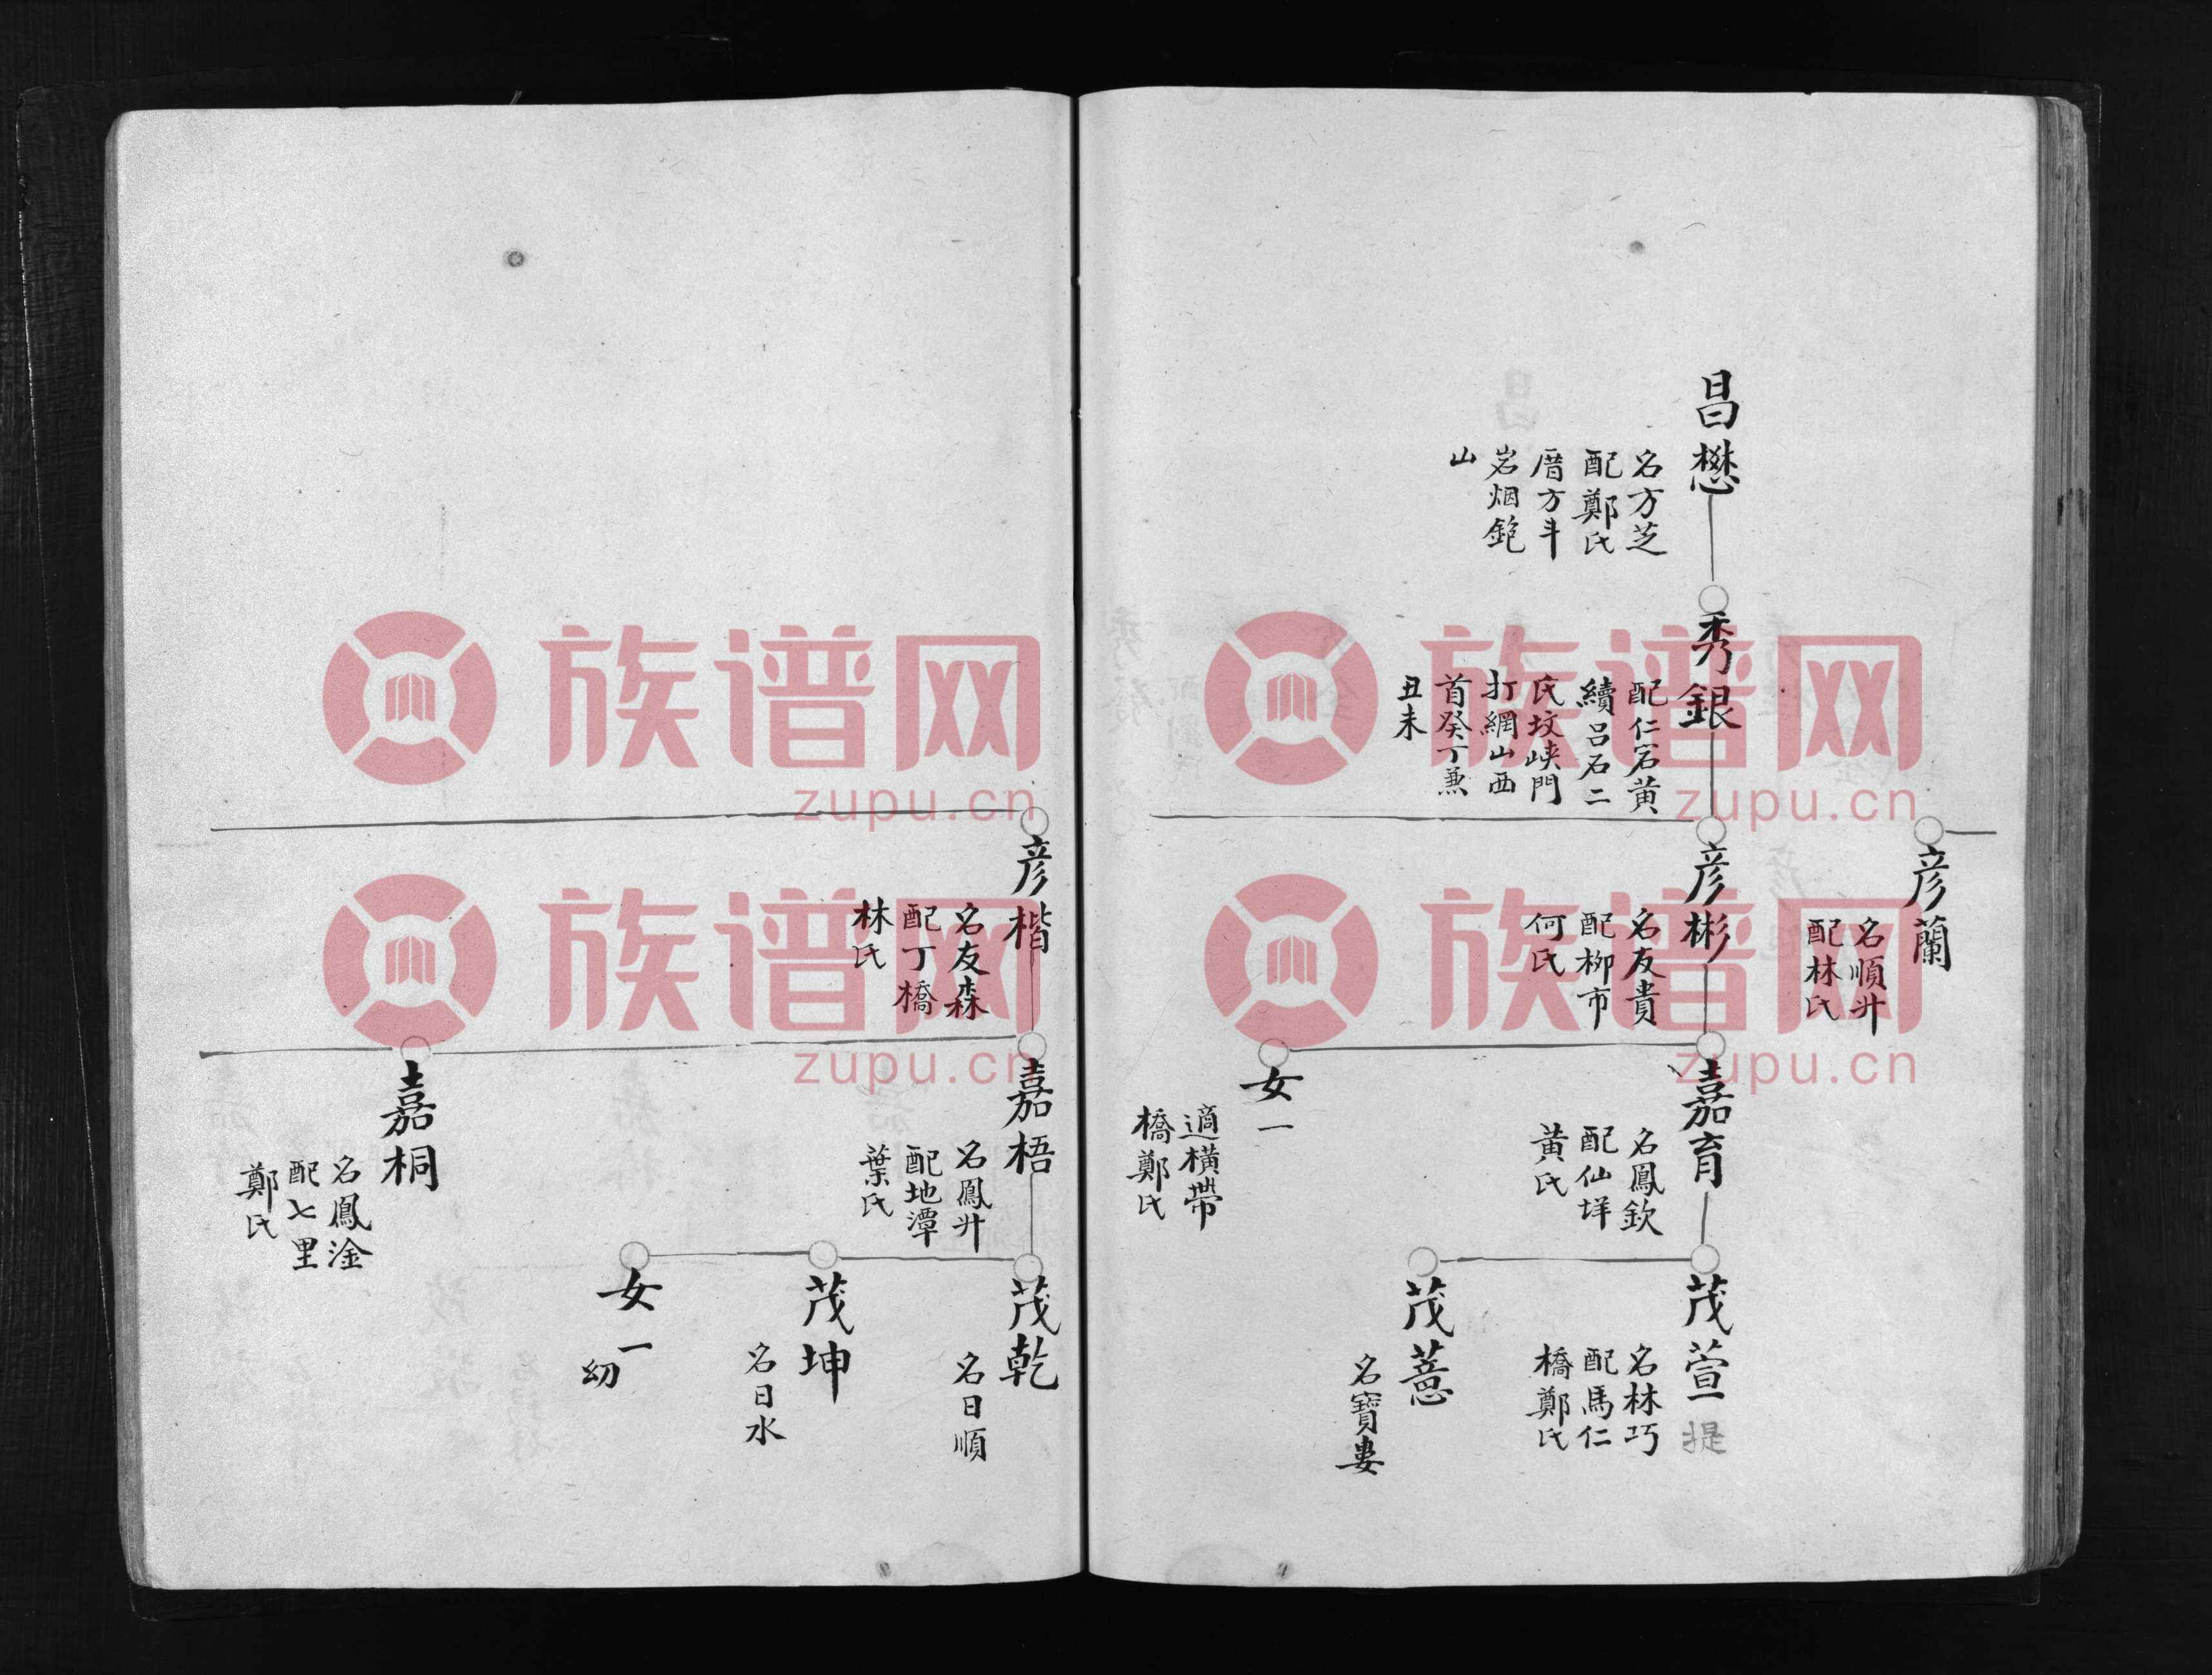 彦蘭
名順廾
配林氏
昌懋
名方芝
配鄭氏
厝方斗
岩烟鉋
山
秀銀
配仁宕黄
續呂石二
氏坟峡門
打網山西
首癸丁兼
丑未
彦彬
名友貴
配柳市
何氏
嘉育
名鳳欽
配仙垟
黄氏
女一
適橫帶
橋鄭氏
茂萱
提
名林巧
配馬仁
橋鄭氏
茂薏
名寶婁
彦楷
名友森
配丁橋
林氏
嘉梧
名鳳廾
配地潭
葉氏
嘉桐
名鳳淦
配七里
鄭氏
茂乾
名日順
茂坤
名日水
女一
幼
族谱网
zupu.cn
族谱网
zupu.cn
族谱网
zupu.cn
族谱网
zupu.cn